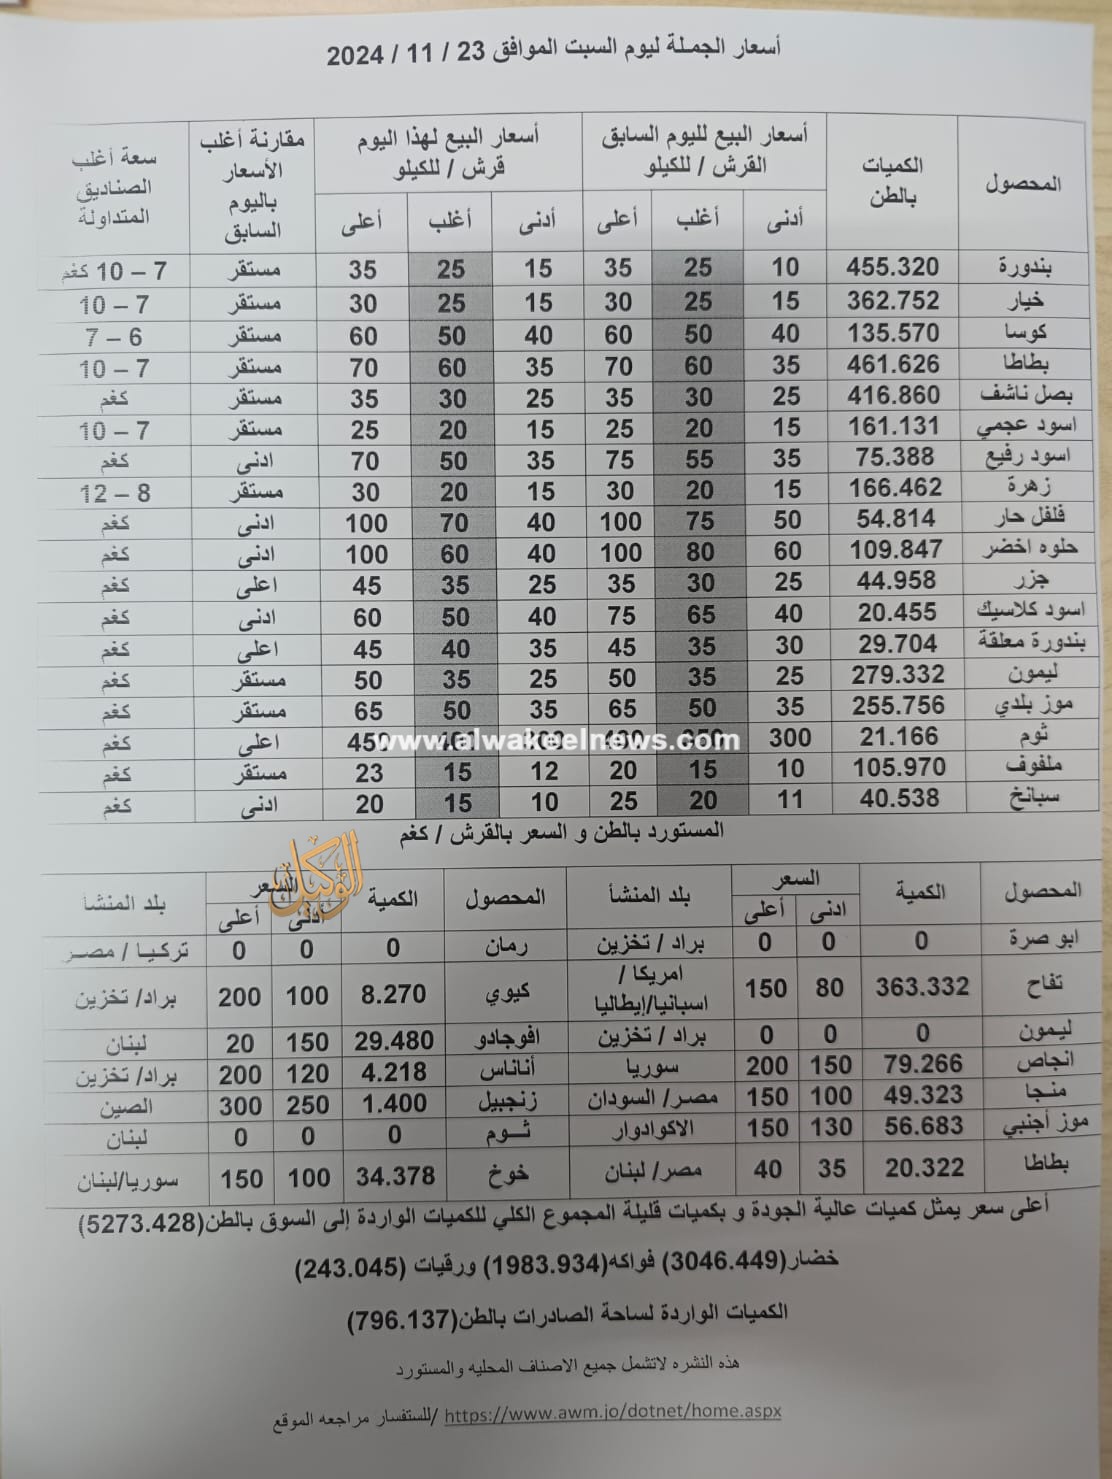 أسعار الجملة ليوم السبت الموافق 23 / 11 / 2024
المحصول الكميات بالطن أسعار البيع لليوم السابق القرش / للكيلو أسعار البيع لهذا اليوم قرش / للكيلو مقارنة أغلب الأسعار باليوم السابق سعة أغلب الصناديق المتداولة
أدنى أغلب أعلى أدنى أغلب أعلى
بندورة 455.320 10 25 35 15 25 35 مستقر 7 – 10 كغم
خيار 362.752 15 25 30 15 25 30 مستقر 7 – 10
كوسا 135.570 40 50 60 40 50 60 مستقر 6 – 7
بطاطا 461.626 35 60 70 35 60 70 مستقر 7 – 10
بصل ناشف 416.860 25 30 35 25 30 35 مستقر كغم
اسود عجمي 161.131 15 20 25 15 20 25 مستقر 7 – 10
اسود رفيع 75.388 35 55 75 35 50 70 ادنى كغم
زهرة 166.462 15 20 30 15 20 30 مستقر 8 – 12
فلفل حار 54.814 50 75 100 40 70 100 ادنى كغم
حلوه اخضر 109.847 60 80 100 40 60 100 ادنى كغم
جزر 44.958 25 30 35 25 35 45 اعلى كغم
اسود كلاسيك 20.455 40 65 75 40 50 60 ادنى كغم
بندورة معلقة 29.704 30 35 45 35 40 45 اعلى كغم
ليمون 279.332 25 35 50 25 35 50 مستقر كغم
موز بلدي 255.756 35 50 65 35 50 65 مستقر كغم
ثوم 21.166 300 450 اعلى كغم
www.alwakeelnews.com
ملفوف 105.970 10 15 20 12 15 23 مستقر كغم
سبانخ 40.538 11 20 25 10 15 20 ادنى كغم
المستورد بالطن و السعر بالقرش / كغم
الوكيل
المحصول الكمية السعر بلد المنشأ المحصول الكمية السعر بلد المنشأ
ادنى أعلى أدنى أعلى
ابو صرة 0 0 0 براد / تخزين رمان 0 0 0 تركيا / مصر
تفاح 363.332 80 150 امريكا / اسبانيا/إيطاليا كيوي 8.270 100 200 براد/ تخزين
ليمون 0 0 0 براد / تخزين افوجادو 29.480 150 20 لبنان
انجاص 79.266 150 200 سوريا أناناس 4.218 120 200 براد/ تخزين
منجا 49.323 100 150 مصر/ السودان زنجبيل 1.400 250 300 الصين
موز أجنبي 56.683 130 150 الاكوادوار ثوم 0 0 0 لبنان
بطاطا 20.322 35 40 مصر/ لبنان خوخ 34.378 100 150 سوريا/لبنان
أعلى سعر يمثل كميات عالية الجودة و بكميات قليلة المجموع الكلي للكميات الواردة إلى السوق بالطن(5273.428)
خضار(3046.449) فواكه(1983.934) ورقيات (243.045)
الكميات الواردة لساحة الصادرات بالطن(796.137)
هذه النشره لاتشمل جميع الاصناف المحليه والمستورد
للستفسار مراجعه الموقع/ https://www.awm.jo/dotnet/home.aspx